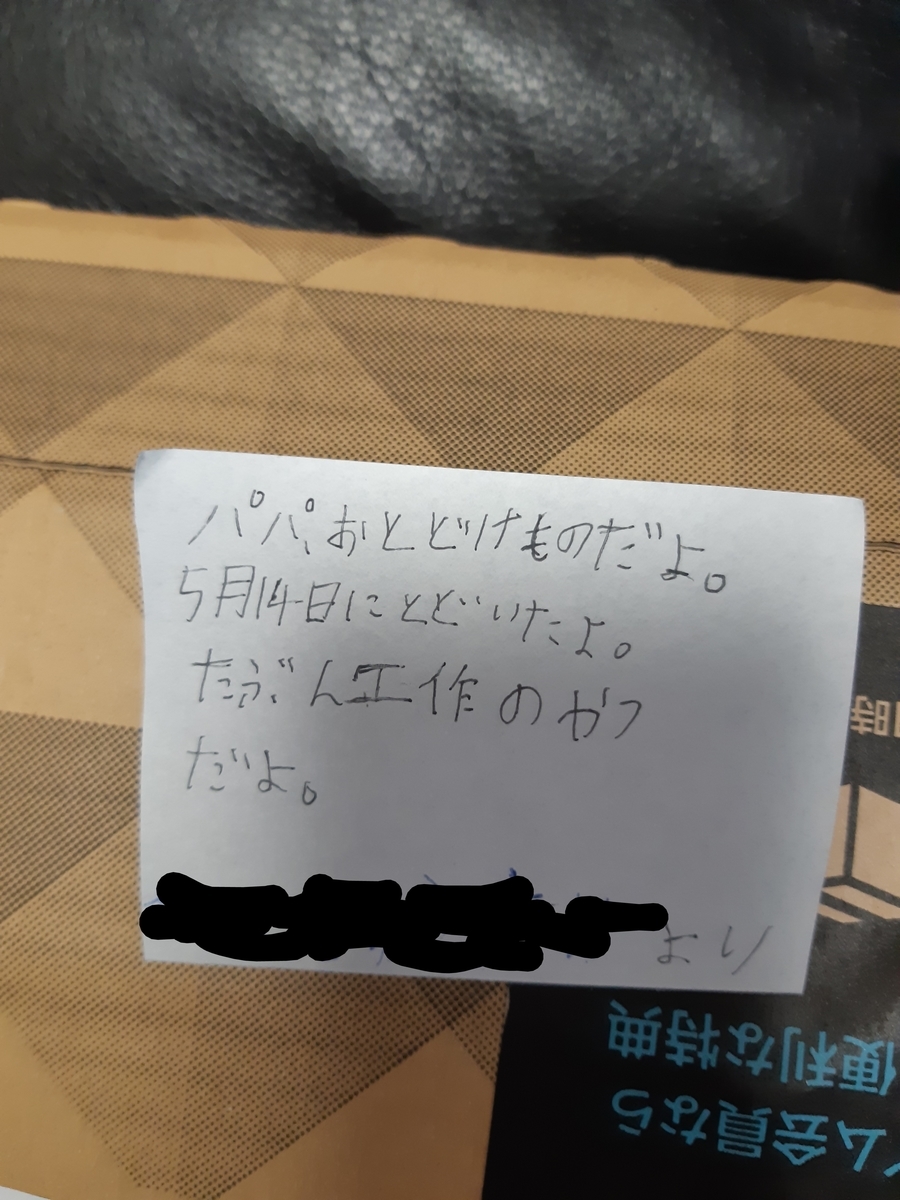 パパ、おとどけものだよ。
5月14日にとどいたよ。
たぶん工作のやつ
だよ。
より
ム会員なら
便利な特典
時